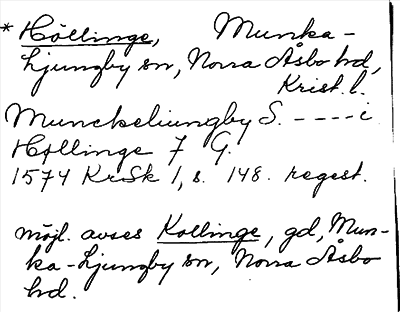 * Höllinge, Munka-
Ljungby sn, Norra Åsbo hd,
Krist. l.
Munckeliungby S. ----i
Höllinge 7 G.
1574 KrSk 1, s. 148. regest.
möjl. avses Kollinge, gd, Mun-
ka-Ljungby sn, Norra Åsbo
hd.